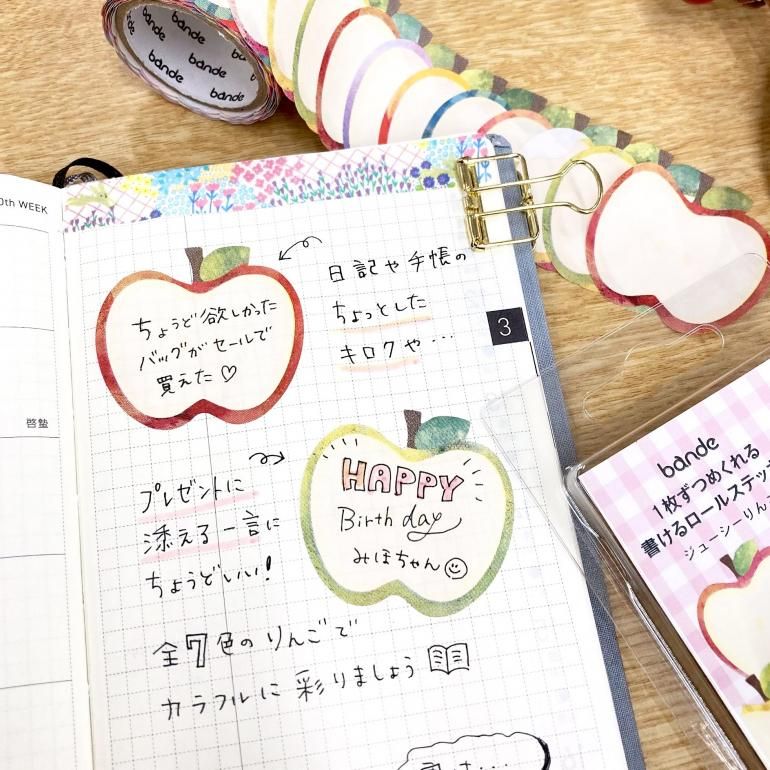 bande
bande
bande
bande
bande
0th WEEK
啓蟄
3
日記や手帳の
ちょっとした
キロクや…
ちょうど欲しかった
バッグがセールで
買えた♡
プレゼントに
添える一言に
ちょうどいい!
HAPPY
Birthday
みほちゃん☺
全7色のりんごで
カラフルに彩りましょう
bande
1枚ずつめくれる
書けるロールステッ
ジューシーりんご